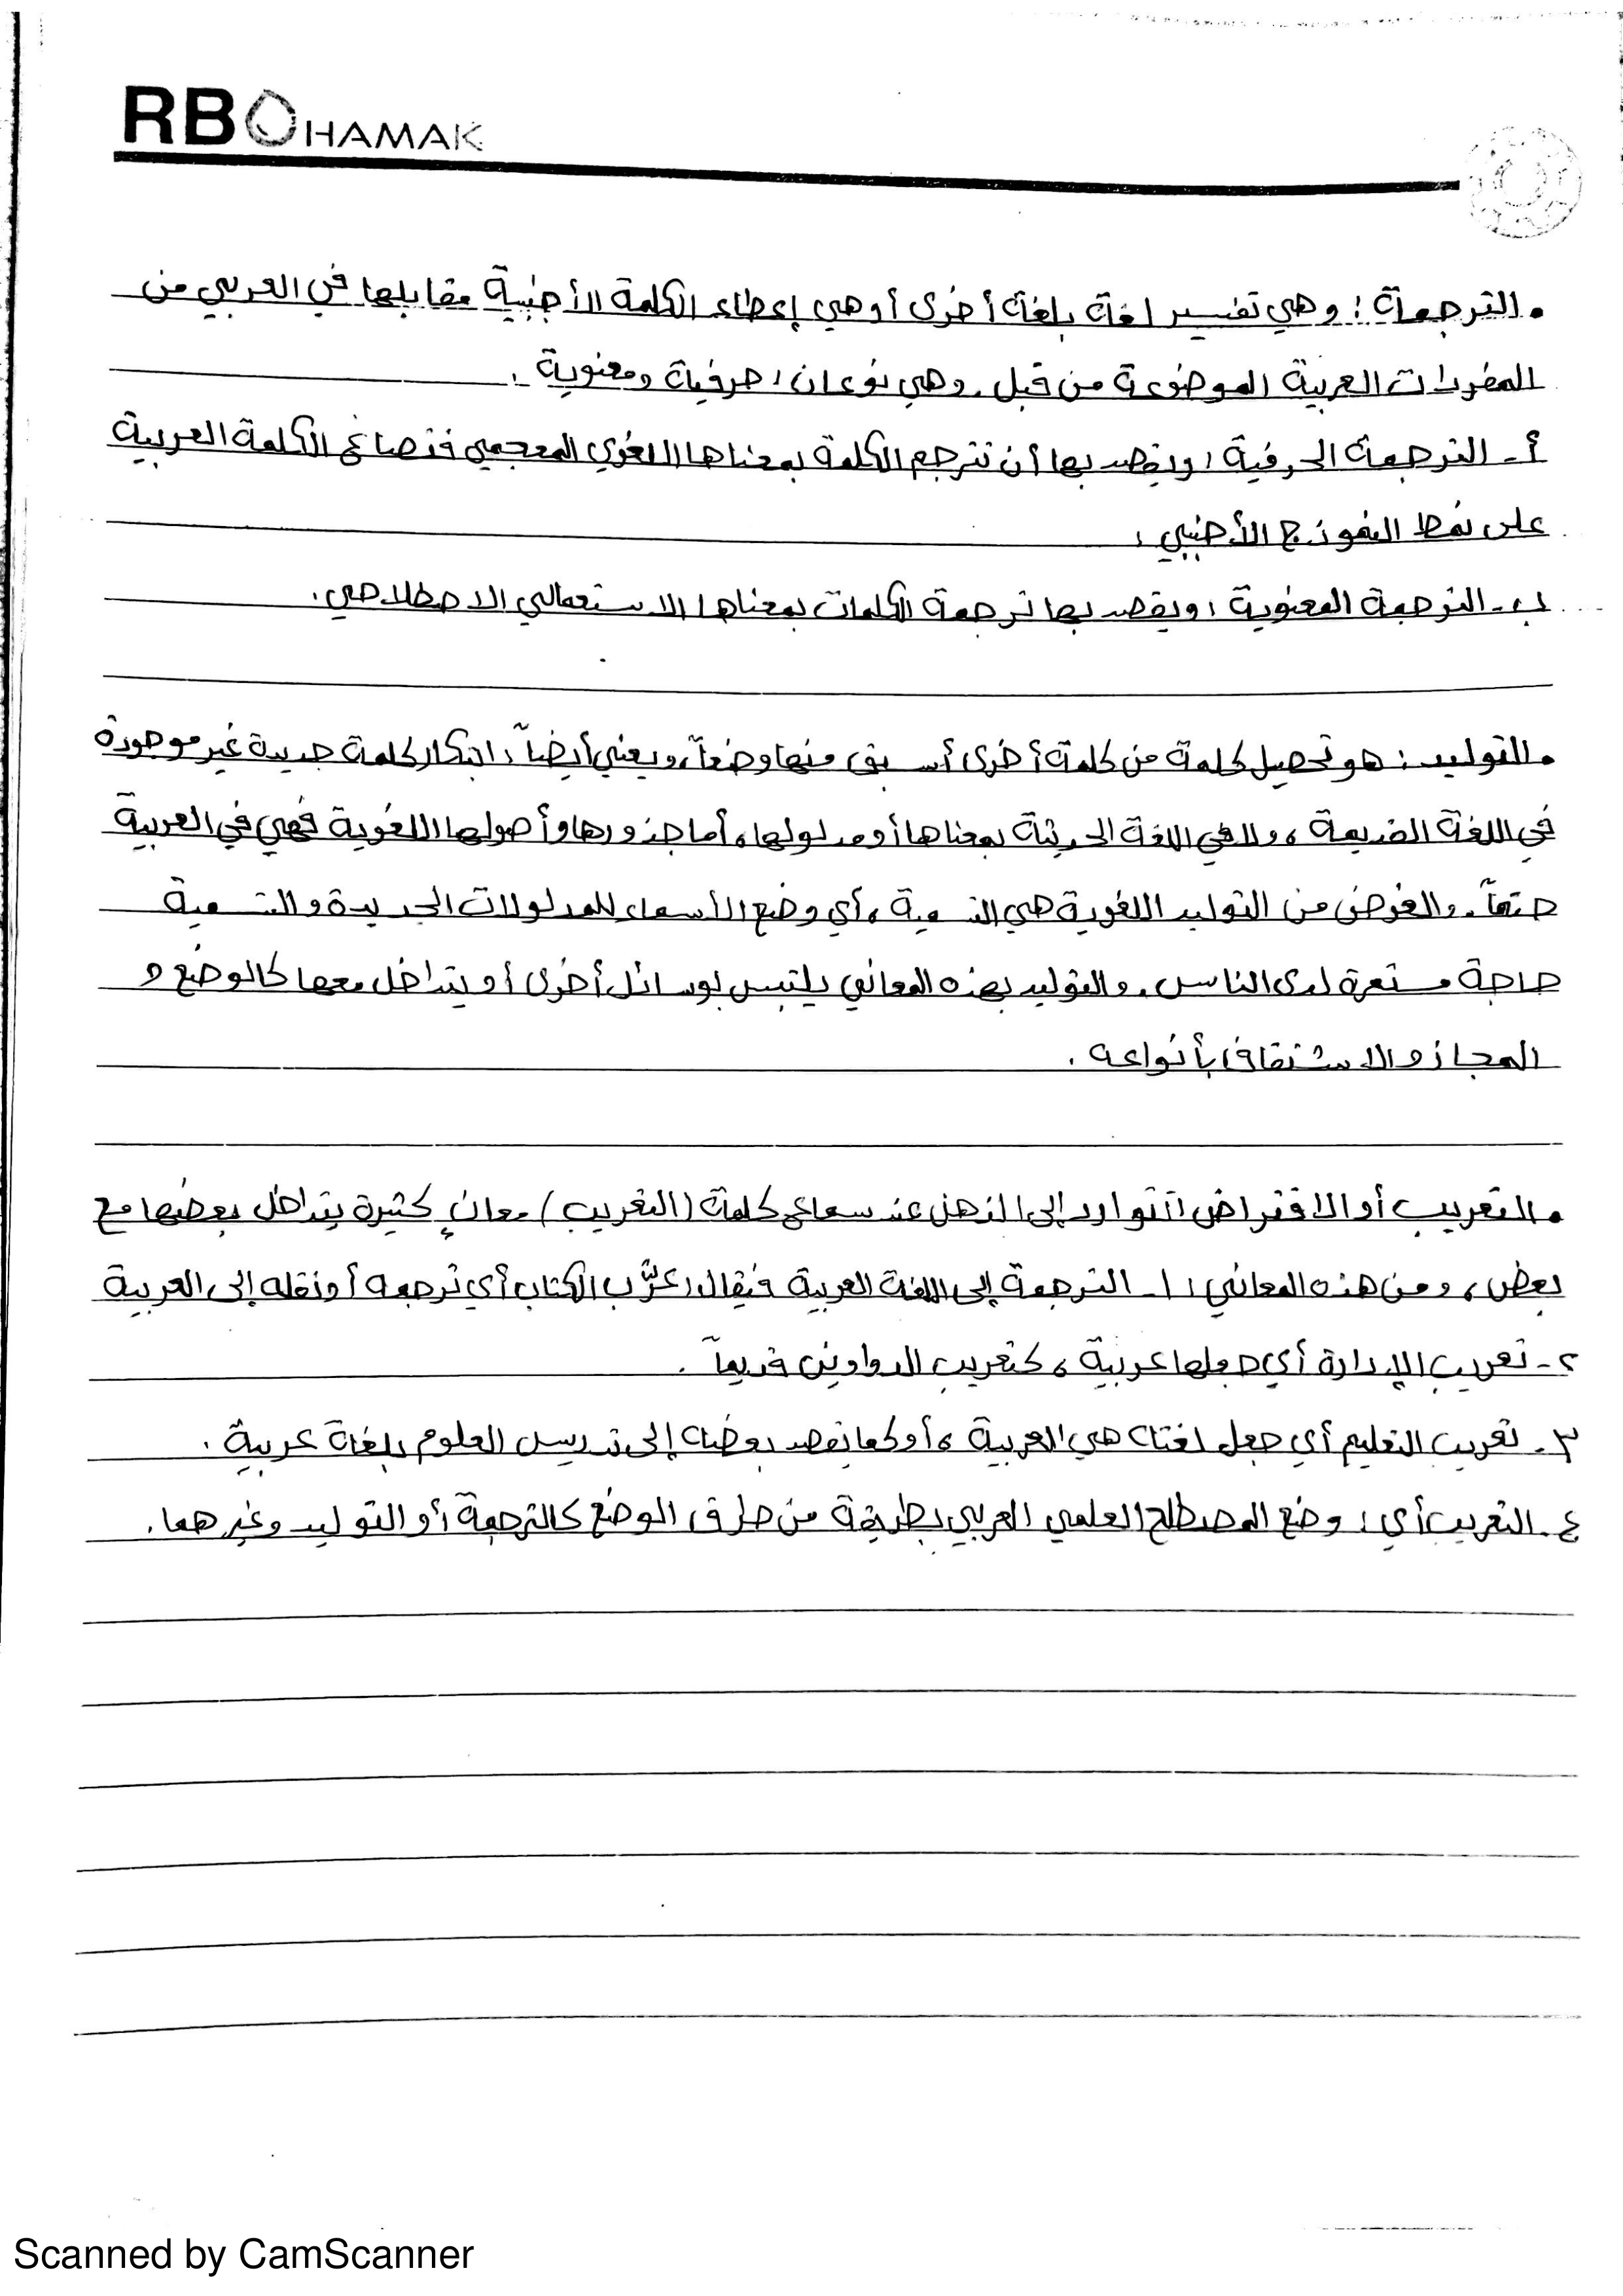 RBOHAMAK
• الترجمة : وهي تفسير لغة بلغة أخرى أو هي إعطاء الكلمة الأجنبية مقابلها في العربي من
المفردات العربية الموضوعة من قبل . وهي نوعان : حرفية ومعنوية :
أ - الترجمة الحرفية : ويقصد بها أن تترجم الكلمة بمعناها اللغوي المعجمي فتصاغ الكلمة العربية
على نمط النموذج الأجنبي :
ب - الترجمة المعنوية : ويقصد بها ترجمة الكلمات بمعناها الاستعمالي الاصطلاحي .
• التوليد : هو تحصيل كلمة من كلمة أخرى أسبق منها وضعاً ، ويعني أيضاً : ابتكار كلمة جديدة غير موجودة
في اللغة القديمة ، ولا في اللغة الحديثة بمعناها أو مدلولها ، أما جذورها وأصولها اللغوية فهي في العربية
حتماً . والغرض من التوليد اللغوية هي التسمية ، أي وضع الأسماء للمدلولات الجديدة والتسمية
حاجة مستمرة لدى الناس . والتوليد بهذه المعاني يلتبس بوسائل أخرى أو يتداخل معها كالوضع و
المجاز والاشتقاق بأنواعه .
• التعريب أو الاقتراض : تتوارد إلى الذهن عند سماع كلمة (التعريب) معانٍ كثيرة يتداخل بعضها مع
بعض ، ومن هذه المعاني : ١ - الترجمة إلى اللغة العربية فيقال : عرَّب الكتاب أي ترجمه أو نقله إلى العربية
٢ - تعريب الإدارة أي جعلها عربية ، كتعريب الدواوين قديماً .
٣ - تعريب التعليم أي جعل لغته هي العربية ، أو كما يقصد بعضه إلى تدريس العلوم بلغة عربية .
٤ - التعريب أي : وضع المصطلح العلمي العربي بطريقة من طرق الوضع كالترجمة أو التوليد وغيرهما .
Scanned by CamScanner